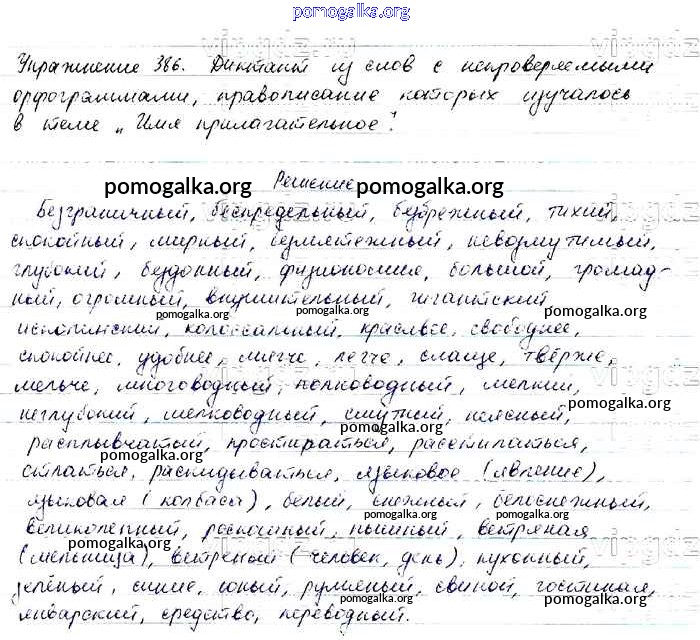 pomogalka.org
Упражнение 386. Диктант из слов с непроверяемыми
орфограммами, правописание которых изучалось
в теме „Имя прилагательное".
Решение
pomogalka.org pomogalka.org
Безграничный, беспредельный, безбрежный, тихий,
спокойный, мирный, безмятежный, невозмутимый,
глубокий, бездонный, физиономия, большой, громад-
ный, огромный, внушительный, гигантский
pomogalka.org pomogalka.org pomogalka.org
исполинский, колоссальный, красивее, свободнее,
спокойнее, удобнее, мягче, легче, слаще, твёрже,
мельче, многоводный, полноводный, мелкий,
pomogalka.org
неглубокий, мелководный, смутный, неясный,
pomogalka.org
расплывчатый, простираться, расстилаться,
pomogalka.org
стлаться, раскидываться, языковое (явление),
языковая (колбаса), белый, снежный, белоснежный,
pomogalka.org pomogalka.org
великолепный, роскошный, пышный, ветряная
pomogalka.org
(мельница), ветреный (человек, день), кухонный,
pomogalka.org
зелёный, синие, юный, румяный, свиной, гостиная,
pomogalka.org pomogalka.org
январский, средство, переводный.